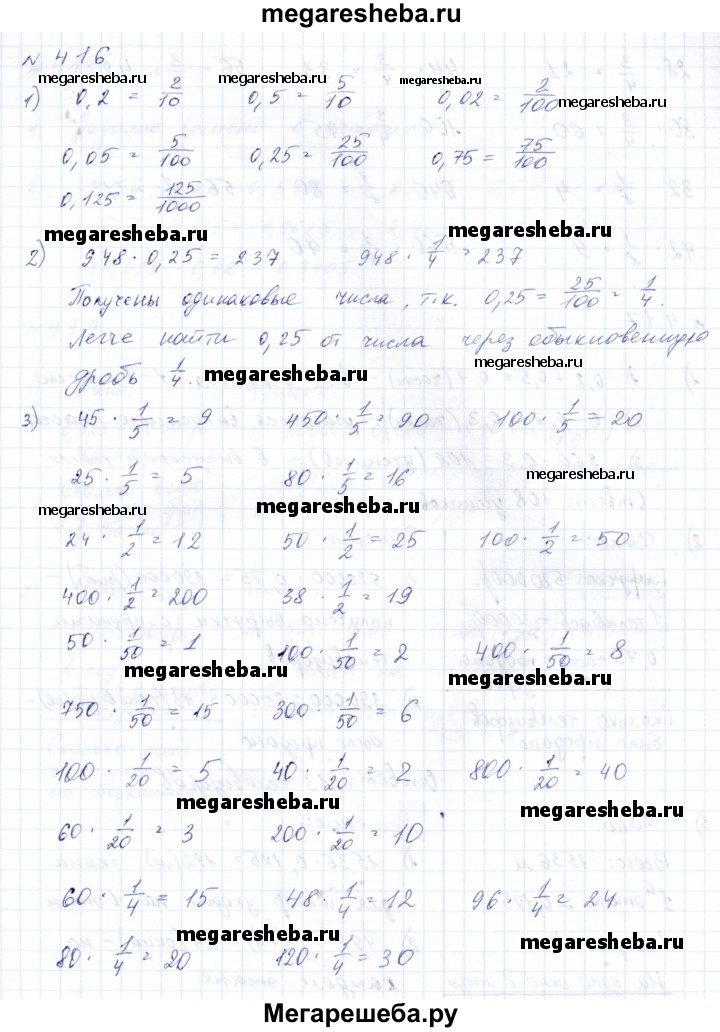 megaresheba.ru
N 416
megaresheba.ru megaresheba.ru megaresheba.ru
1) 0,2 = 2/10 0,5 = 5/10 0,02 = 2/100 megaresheba.ru
0,05 = 5/100 0,25 = 25/100 0,75 = 75/100
0,125 = 125/1000
megaresheba.ru megaresheba.ru
2) 948 · 0,25 = 237 948 · 1/4 = 237
Получены одинаковые числа, т.к. 0,25 = 25/100 = 1/4.
Легче найти 0,25 от числа через обыкновенную
дробь 1/4. megaresheba.ru megaresheba.ru
3) 45 · 1/5 = 9 450 · 1/5 = 90 100 · 1/5 = 20
25 · 1/5 = 5 80 · 1/5 = 16 megaresheba.ru
megaresheba.ru megaresheba.ru
24 · 1/2 = 12 50 · 1/2 = 25 100 · 1/2 = 50
400 · 1/2 = 200 38 · 1/2 = 19
50 · 1/50 = 1 100 · 1/50 = 2 400 · 1/50 = 8
megaresheba.ru megaresheba.ru
750 · 1/50 = 15 300 · 1/50 = 6
100 · 1/20 = 5 40 · 1/20 = 2 800 · 1/20 = 40
megaresheba.ru megaresheba.ru
60 · 1/20 = 3 200 · 1/20 = 10
60 · 1/4 = 15 48 · 1/4 = 12 96 · 1/4 = 24
megaresheba.ru megaresheba.ru
80 · 1/4 = 20 120 · 1/4 = 30
Мегарешеба.ру